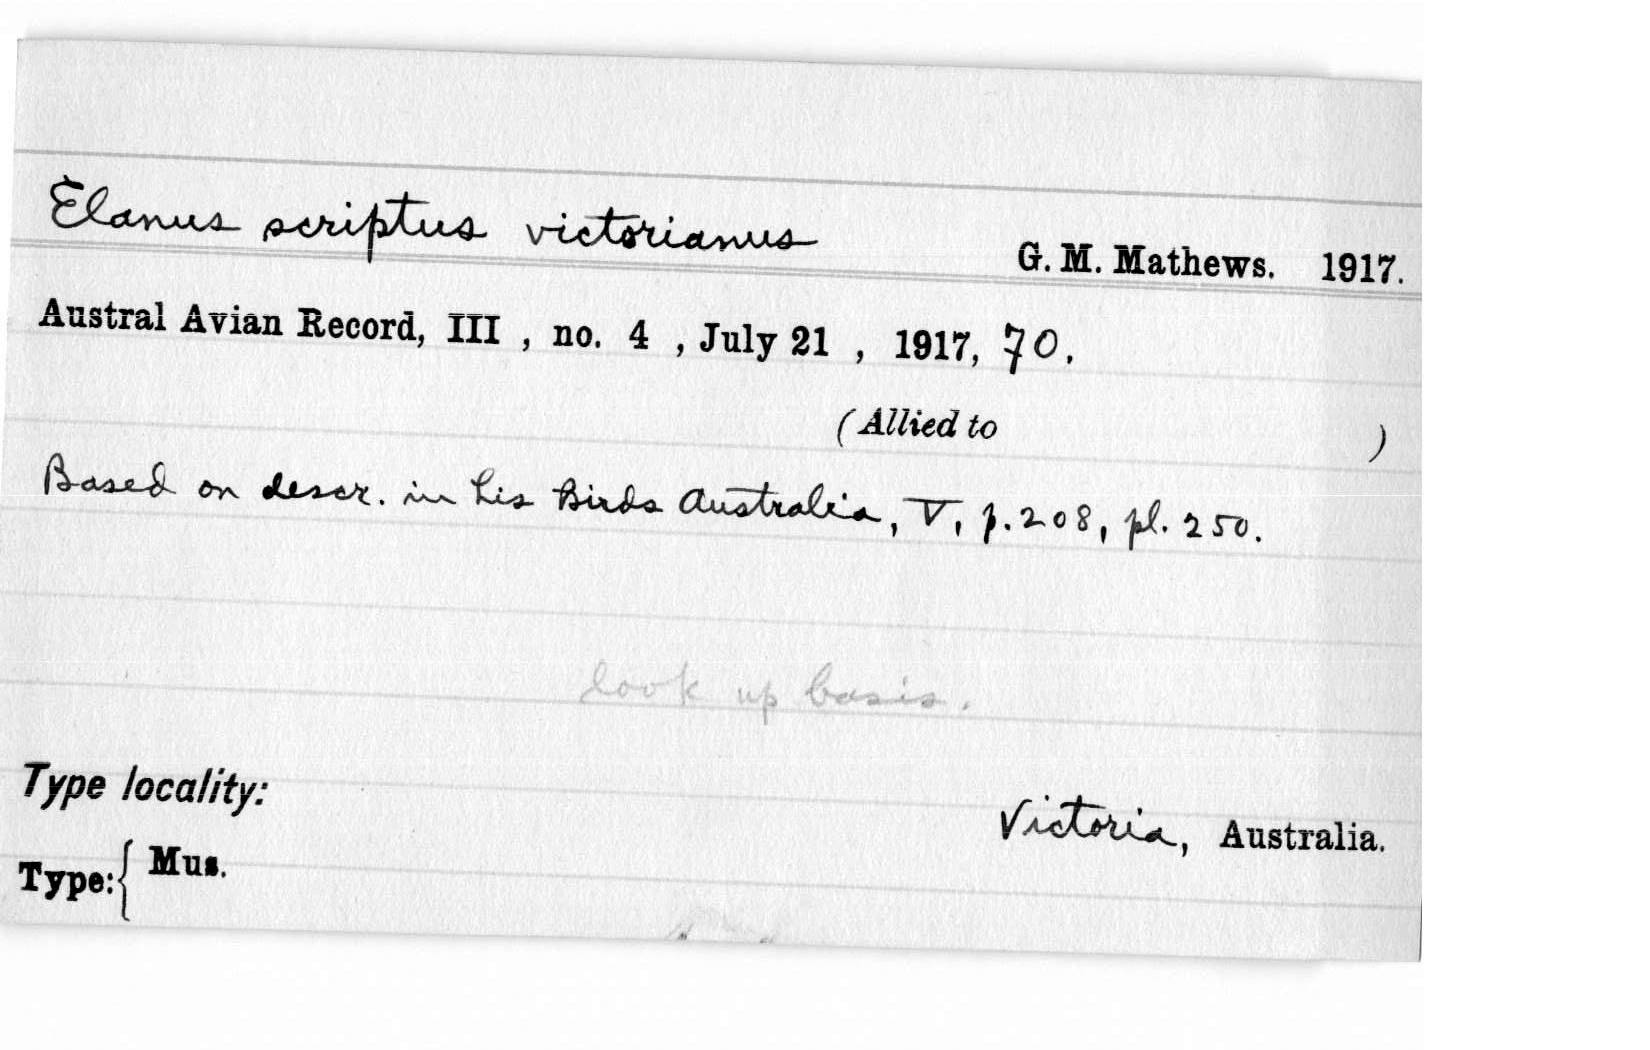 Elanus scriptus victorianus G. M. Mathews. 1917.
Austral Avian Record, III , no. 4 , July 21 , 1917, 70.
(Allied to )
Based on descr. in his Birds Australia, V, p. 208, pl. 250.
look up basis.
Type locality:
Victoria, Australia.
Type: { Mus.